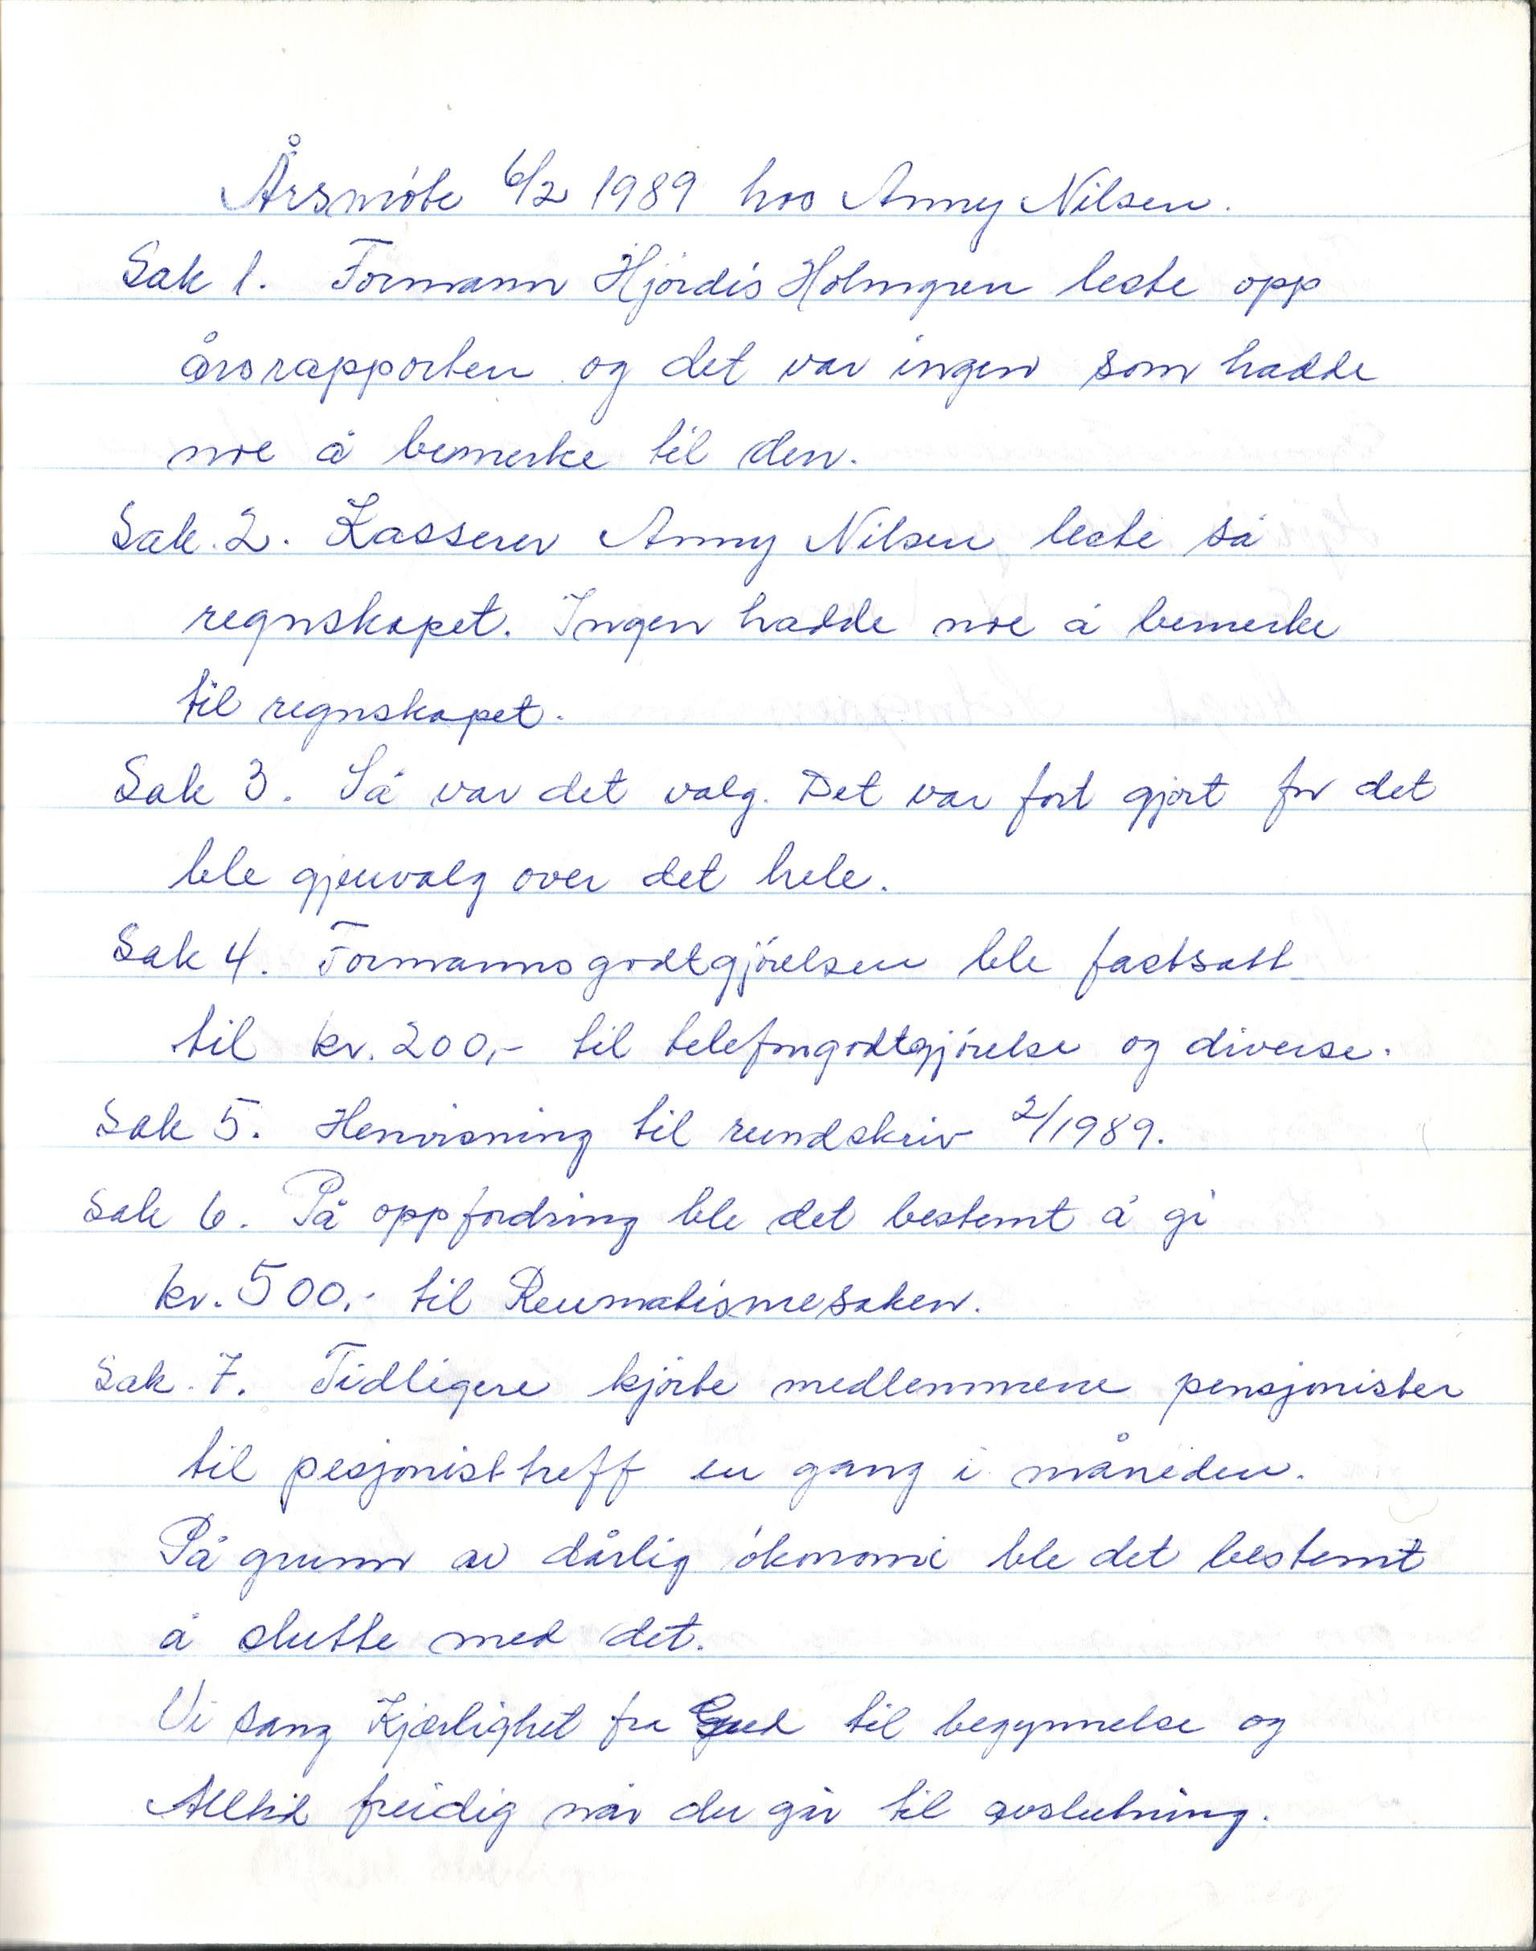 Årsmøte 6/2 1989 hos Anny Nilsen.
Sak 1. Formann Hjørdis Holmgren leste opp
årsrapporten og det var ingen som hadde
noe å bemerke til den.
Sak. 2. Kasserer Anny Nilsen leste så
regnskapet. Ingen hadde noe å bemerke
til regnskapet.
Sak 3. Så var det valg. Det var fort gjort for det
ble gjenvalg over det hele.
Sak 4. Formannsgodtgjørelsen ble fastsatt
til kr. 200,- til telefongodtgjørelse og diverse.
Sak 5. Henvisning til rundskriv 2/1989.
Sak 6. På oppfordring ble det bestemt å gi
kr. 500,- til Reumatismesaken.
Sak. 7. Tidligere kjørte medlemmene pensjonister
til pesjonisttreff en gang i måneden.
På grunn av dårlig økonomi ble det bestemt
å slutte med det.
Vi sang Kjærlighet fra Gud til begynnelse og
Alltid freidig når du går til avslutning.